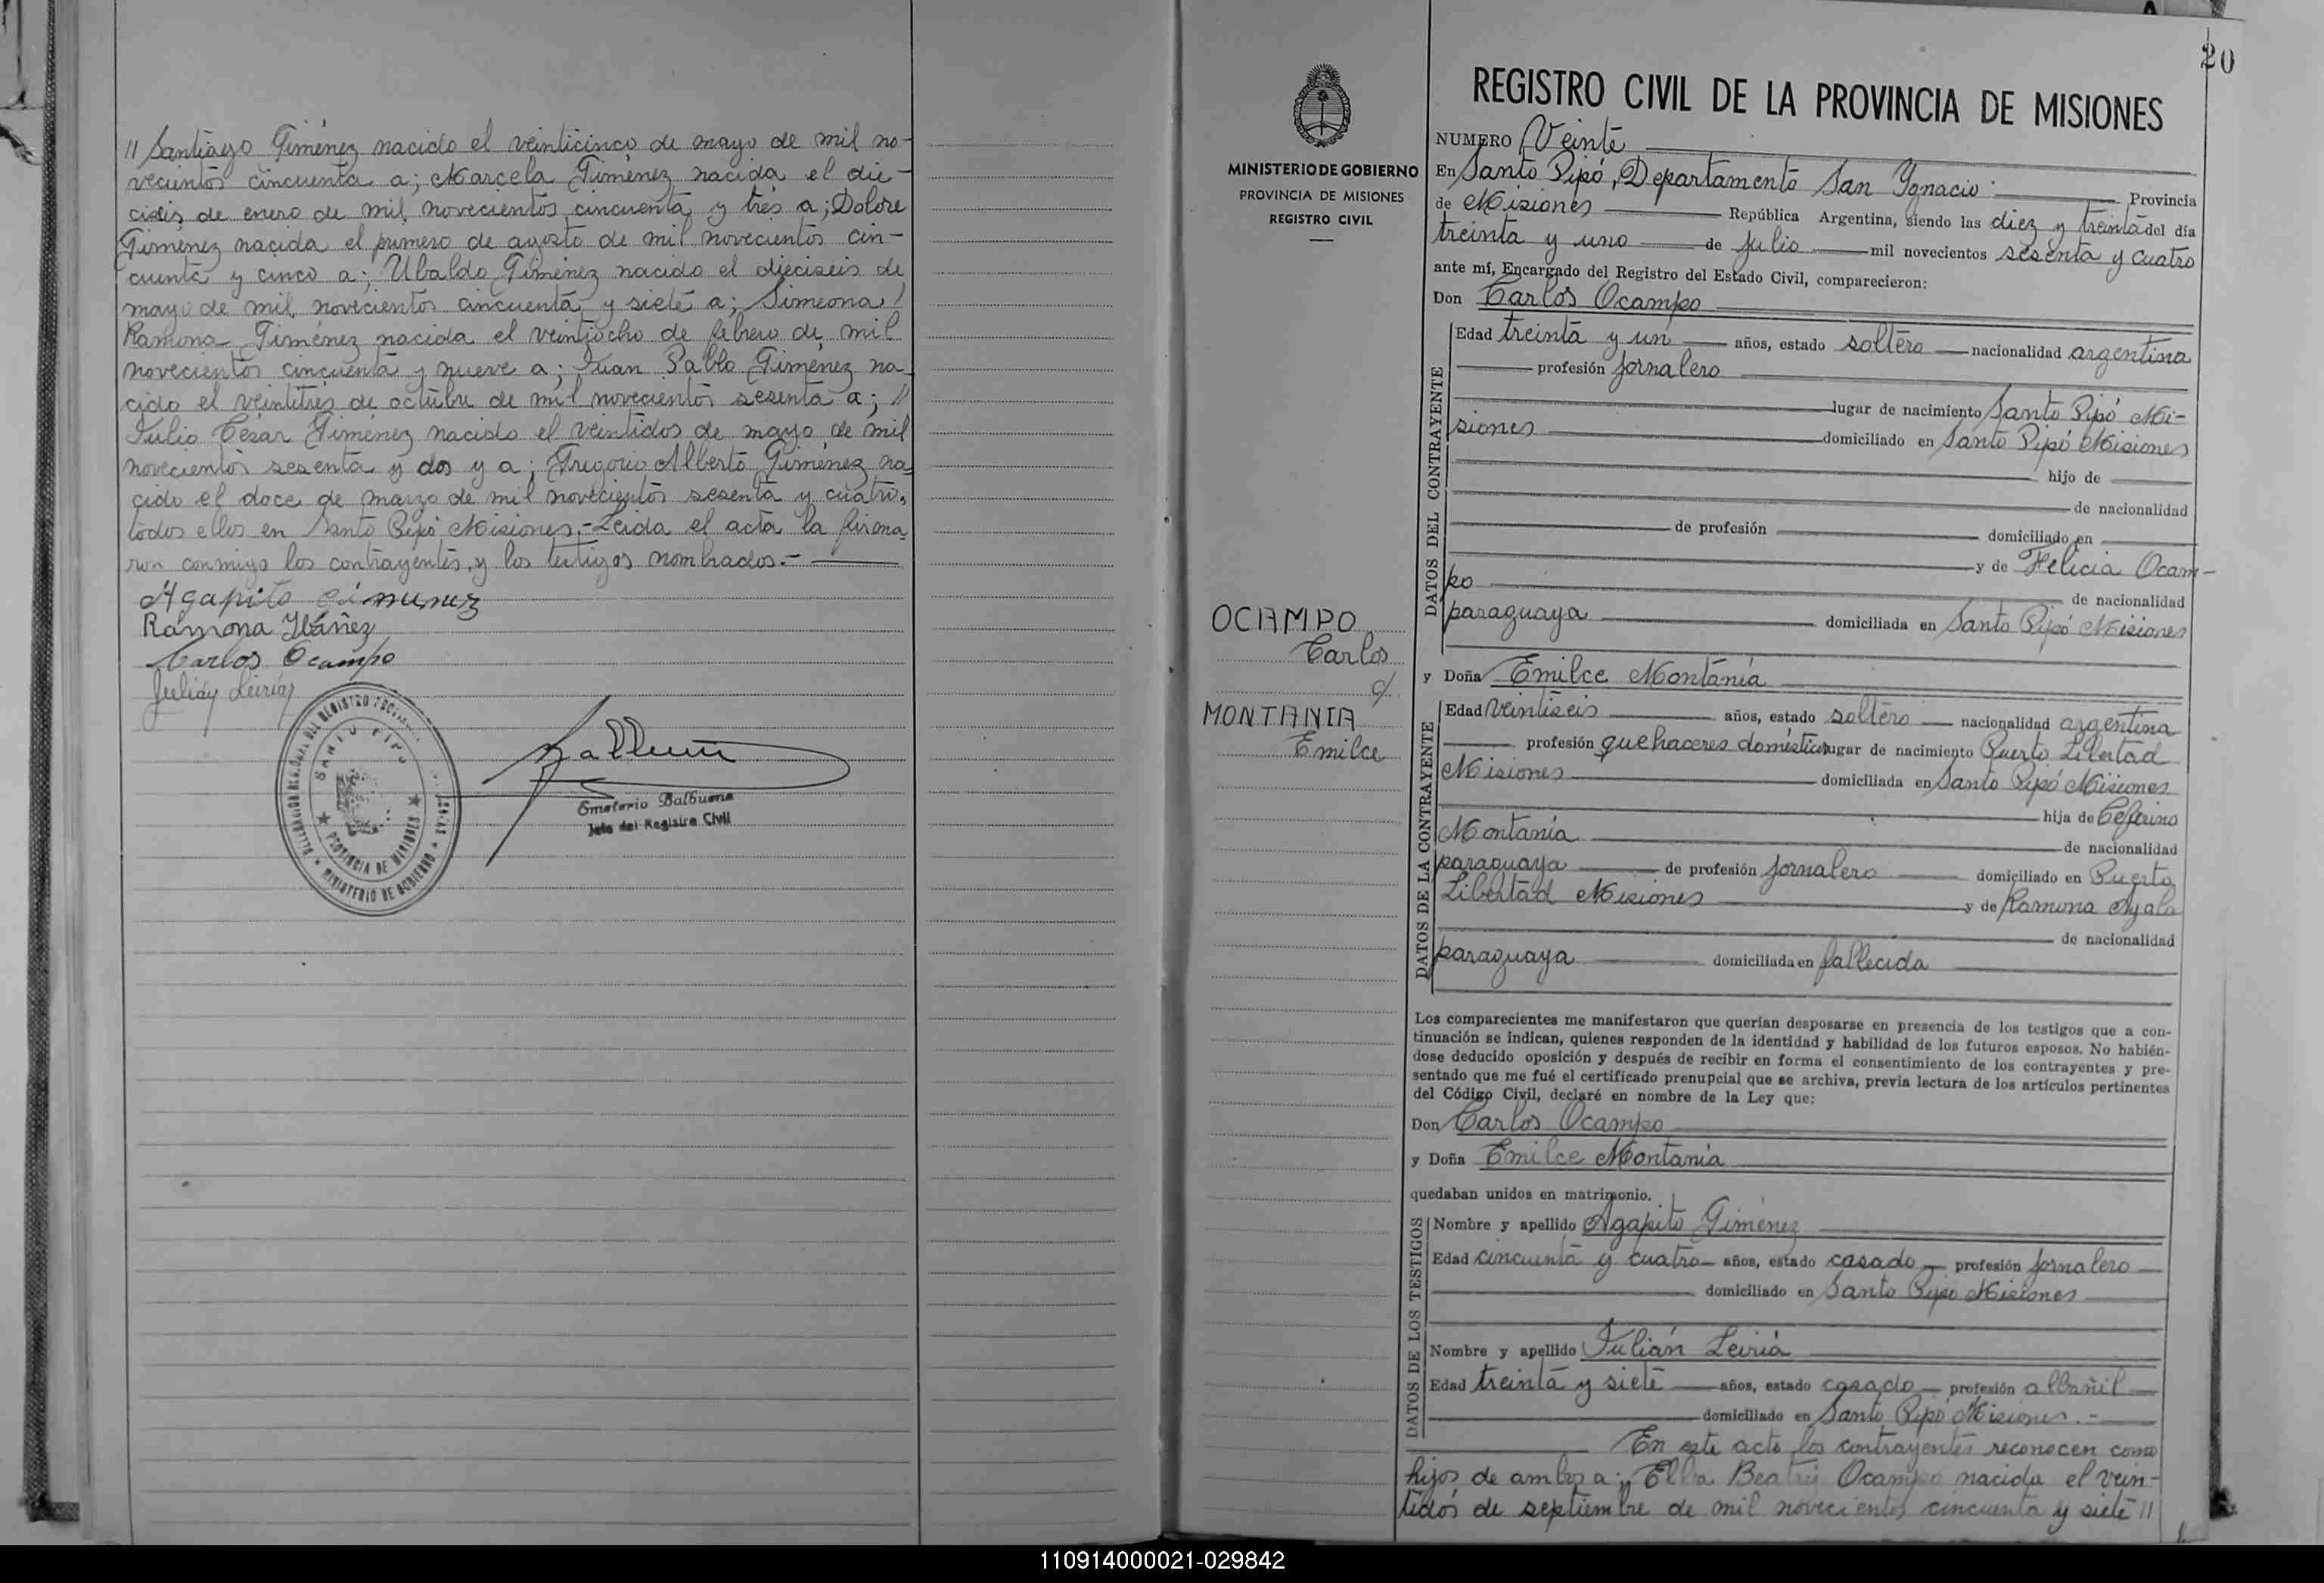 // Santiago Giménez nacido el veinticinco de mayo de mil no-
vecientos cincuenta a; Marcela Giménez nacida el die-
ciséis de enero de mil novecientos cincuenta y tres a; Dolore
Giménez nacida el primero de agosto de mil novecientos cin-
cuenta y cinco a; Ubaldo Giménez nacido el dieciseis de
mayo de mil novecientos cincuenta y siete a; Simeona /
Ramona Giménez nacida el veintiocho de febrero de mil
novecientos cincuenta y nueve a; Juan Pablo Giménez na-
cido el veintitres de octubre de mil novecientos sesenta a; //
Julio César Giménez nacido el veintidos de mayo de mil
novecientos sesenta y dos y a; Gregorio Alberto Giménez na-
cido el doce de marzo de mil novecientos sesenta y cuatro,
todos ellos en Santo Pipó Misiones.- Leida el acta la firma-
ron conmigo los contrayentes, y los testigos nombrados.-
Agapito Gimenez
Ramona Ybáñez
Carlos Ocampo
Julian Leiria
SANTO PIPO
PROVINCIA DE MISIONES
MINISTERIO DE GOBIERNO
Balbuena
Emeterio Balbuena
Jefe del Registro Civil
20
MINISTERIO DE GOBIERNO
PROVINCIA DE MISIONES
REGISTRO CIVIL
OCAMPO
Carlos
c/
MONTANIA
Emilce
REGISTRO CIVIL DE LA PROVINCIA DE MISIONES
NUMERO Veinte
En Santo Pipó, Departamento San Ygnacio Provincia
de Misiones República Argentina, siendo las diez y treinta del día
treinta y uno de julio mil novecientos sesenta y cuatro
ante mí, Encargado del Registro del Estado Civil, comparecieron:
Don Carlos Ocampo
DATOS DEL CONTRAYENTE
Edad treinta y un años, estado soltero nacionalidad argentina
profesión jornalero
lugar de nacimiento Santo Pipó Mi-
siones domiciliado en Santo Pipó Misiones
hijo de
de nacionalidad
de profesión domiciliado en
y de Felicia Ocam-
po de nacionalidad
paraguaya domiciliada en Santo Pipó Misiones
y Doña Emilce Montania
DATOS DE LA CONTRAYENTE
Edad veintiseis años, estado soltero nacionalidad argentina
profesión quehaceres domésticos lugar de nacimiento Puerto Libertad
Misiones domiciliada en Santo Pipó Misiones
hija de Ceferino
Montania de nacionalidad
paraguaya de profesión jornalero domiciliado en Puerto
Libertad Misiones y de Ramona Ayala
de nacionalidad
paraguaya domiciliada en fallecida
Los comparecientes me manifestaron que querían desposarse en presencia de los testigos que a con-
tinuación se indican, quienes responden de la identidad y habilidad de los futuros esposos. No habién-
dose deducido oposición y después de recibir en forma el consentimiento de los contrayentes y pre-
sentado que me fué el certificado prenupcial que se archiva, previa lectura de los artículos pertinentes
del Código Civil, declaré en nombre de la Ley que:
Don Carlos Ocampo
y Doña Emilce Montania
quedaban unidos en matrimonio.
DATOS DE LOS TESTIGOS
Nombre y apellido Agapito Giménez
Edad cincuenta y cuatro años, estado casado profesión jornalero
domiciliado en Santo Pipó Misiones
Nombre y apellido Julián Leiriá
Edad treinta y siete años, estado casado profesión albañil
domiciliado en Santo Pipó Misiones.-
En este acto los contrayentes reconocen como
hijos de ambos a; Elba Beatriz Ocampo nacida el vein-
tidós de septiembre de mil novecientos cincuenta y siete //
110914000021-029842